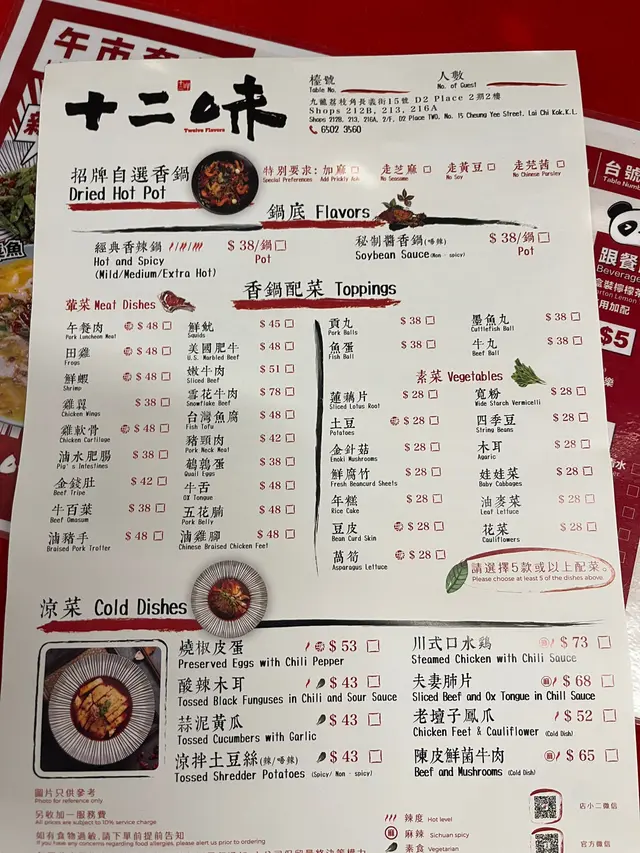 午市套
十二味
Twelve Flavors
檯號
Table No.
人數
No. of Guest
九龍荔枝角長義街15號 D2 Place 2期2樓
Shops 212B, 213, 216A
Shops 212B, 213, 216A, 2/F, D2 Place TWO, No. 15 Cheung Yee Street, Lai Chi Kok,K.L.
6502 3560
招牌自選香鍋
Dried Hot Pot
特別要求: 加麻 走芝麻 走黃豆 走芫茜
Special Preferences Add Prickly Ash No Seasame No Soy No Chinese Parsley
鍋底 Flavors
經典香辣鍋 $ 38/鍋
Hot and Spicy Pot
(Mild/Medium/Extra Hot)
秘制醬香鍋(唔辣) $ 38/鍋
Soybean Sauce(Non - spicy) Pot
香鍋配菜 Toppings
葷菜 Meat Dishes
午餐肉 $ 48
Pork Luncheon Meat
田雞 $ 48
Frogs
鮮蝦 $ 48
Shrimp
雞翼 $ 38
Chicken Wings
雞軟骨 $ 48
Chicken Cartilage
滷水肥腸 $ 38
Pig's Intestines
金錢肚 $ 42
Beef Tripe
牛百葉 $ 38
Beef Omasum
滷豬手 $ 48
Braised Pork Trotter
鮮魷 $ 45
Squids
美國肥牛 $ 48
U.S. Marbled Beef
嫩牛肉 $ 51
Sliced Beef
雪花牛肉 $ 78
Snowflake Beef
台灣魚腐 $ 48
Fish Tofu
豬頸肉 $ 42
Pork Neck Meat
鵪鶉蛋 $ 38
Quail Eggs
牛舌 $ 48
OX Tongue
五花腩 $ 48
Pork Belly
滷雞腳 $ 48
Chinese Braised Chicken Feet
貢丸 $ 38
Pork Balls
魚蛋 $ 38
Fish Ball
墨魚丸 $ 38
Cuttlefish Ball
牛丸 $ 38
Beef Ball
素菜 Vegetables
蓮藕片 $ 28
Sliced Lotus Root
土豆 $ 28
Potatoes
金針菇 $ 28
Enoki Mushrooms
鮮腐竹 $ 28
Fresh Beancurd Sheets
年糕 $ 28
Rice Cake
豆皮 $ 28
Bean Curd Skin
萵筍 $ 28
Asparagus Lettuce
寬粉 $ 28
Wide Starch Vermicelli
四季豆 $ 28
String Beans
木耳 $ 28
Agaric
娃娃菜 $ 28
Baby Cabbages
油麥菜 $ 28
Leaf Lettuce
花菜 $ 28
Cauliflowers
請選擇5款或以上配菜。
Please choose at least 5 of the dishes above.
涼菜 Cold Dishes
燒椒皮蛋 $ 53
Preserved Eggs with Chili Pepper
酸辣木耳 $ 43
Tossed Black Funguses in Chili and Sour Sauce
蒜泥黃瓜 $ 43
Tossed Cucumbers with Garlic
涼拌土豆絲(辣/唔辣) $ 43
Tossed Shredder Potatoes (Spicy/ Non - spicy)
川式口水鷄 $ 73
Steamed Chicken with Chili Sauce
夫妻肺片 $ 68
Sliced Beef and Ox Tongue in Chill Sauce
老壇子鳳爪 $ 52
Chicken Feet & Cauliflower (Cold Dish)
陳皮鮮菌牛肉 $ 65
Beef and Mushrooms (Cold Dish)
圖片只供參考
Photo for reference only
另收加一服務費
All prices are subject to 10% service charge
如有食物過敏,請下單前提前告知
If you have any concerns regarding food allergies, please alert us prior to ordering
辣度 Hot level
麻 麻辣 Sichuan spicy
素食 Vegetarian
店小二微信
官方微信
台號
Table Num
跟餐
Beverage
盒裝檸檬茶
用加配
$5